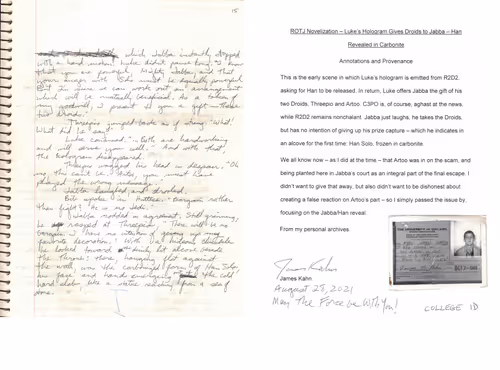 15
which Jabba instantly stopped
with a hand motion. Luke didn't pause long. "I know
that you are powerful, Mighty Jabba, and that
your anger with Solo must be equally powerful.
But I'm sure we can work out an arrangement
which will be mutually beneficial. As a token of
my goodwill, I present to you a gift — these
two droids."
Threepio jumped back as if stung. "What!
What did he say?"
Luke continued. "... Both are hardworking
and will serve you well." And with that
the hologram disappeared.
Threepio wagged his head in despair. "Oh
no, this can't be. Artoo, you must have
played the wrong message."
Jabba laughed and drooled.
Bib spoke in Huttese. "Bargain rather
than fight? He is no Jedi."
Jabba nodded in agreement. Still grinning,
he rasped at Threepio. "There will be no
bargain. I have no intention of giving up my
favorite decoration." With a hideous chuckle
he looked toward the dimly lit alcove beside
the throne; there, hanging flat against
the wall, was the carbonized form of Han Solo,
his face and hands emerging the cold
hard slab, like a statue reaching from a sea of
stone.
ROTJ Novelization – Luke's Hologram Gives Droids to Jabba – Han
Revealed in Carbonite
Annotations and Provenance
This is the early scene in which Luke's hologram is emitted from R2D2,
asking for Han to be released. In return, Luke offers Jabba the gift of his
two Droids, Threepio and Artoo. C3PO is, of course, aghast at the news,
while R2D2 remains nonchalant. Jabba just laughs, he takes the Droids,
but has no intention of giving up his prize capture – which he indicates in
an alcove for the first time: Han Solo, frozen in carbonite.
We all know now – as I did at the time – that Artoo was in on the scam, and
being planted here in Jabba's court as an integral part of the final escape. I
didn't want to give that away, but also didn't want to be dishonest about
creating a false reaction on Artoo's part – so I simply passed the issue by,
focusing on the Jabba/Han reveal.
From my personal archives.
James Kahn
James Kahn
August 28, 2021
May The Force be With You!
COLLEGE ID